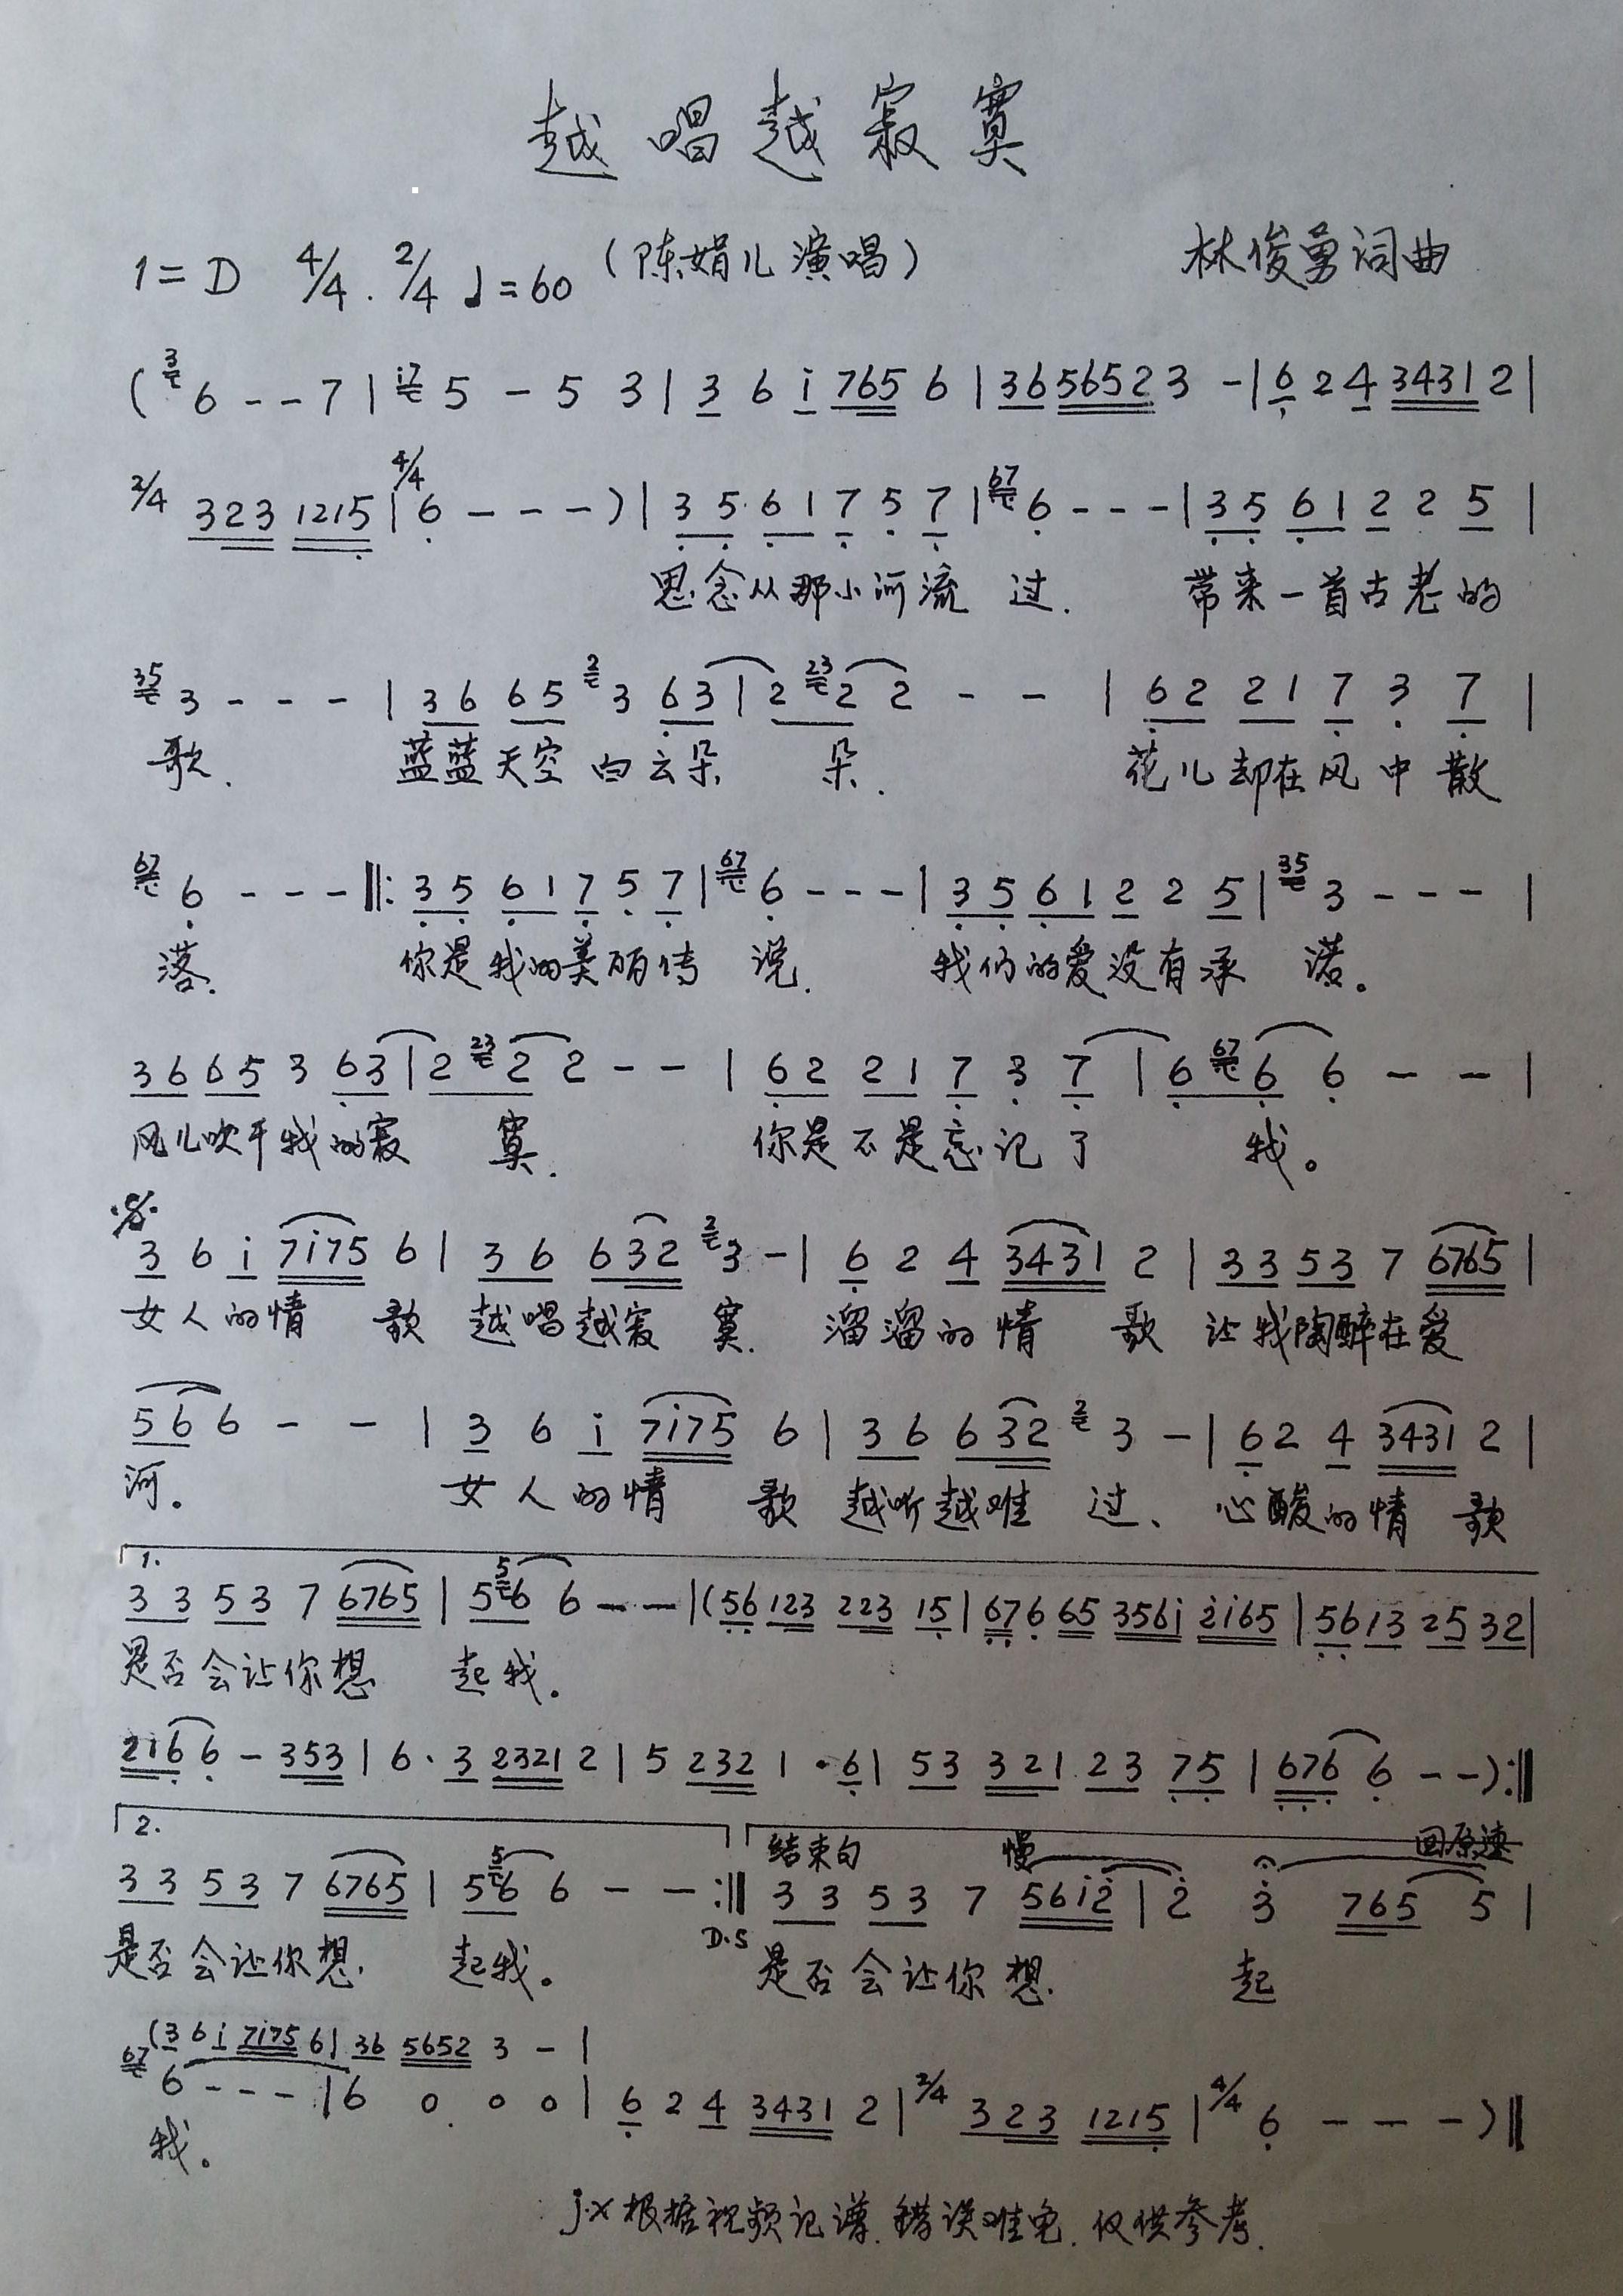 越唱越寂寞
1=D 4/4 . 2/4 ♩=60 (陈娟儿演唱) 林俊勇词曲
( 3 6 - - 7 | i7 5 - 5 3 | 3 6 i 765 6 | 36 5652 3 - | 6 2 4 3431 2 |
2/4 323 1215 | 4/4 6 - - - ) | 3 5 6 1 7 5 7 | 67 6 - - - | 3 5 6 1 2 2 5 |
思念从那小河流 过. 带来一首古老的
35 3 - - - | 36 65 2 3 63 | 2 23 2 2 - - | 62 21 7 3 7 |
歌. 蓝蓝天空白云朵 朵. 花儿却在风中散
67 6 - - - ‖: 3 5 6 1 7 5 7 | 67 6 - - - | 3 5 6 1 2 2 5 | 35 3 - - - |
落. 你是我的美丽传 说. 我们的爱没有承 诺。
36 65 3 63 | 2 23 2 2 - - | 62 21 7 3 7 | 6 67 6 6 - - |
风儿吹干我的寂 寞. 你是不是忘记了 我。
𝄋 3 6 i 7i75 6 | 3 6 632 2 3 - | 6 2 4 3431 2 | 33 53 7 6765 |
女人的情 歌 越唱越寂 寞. 溜溜的情 歌 让我陶醉在爱
56 6 - - | 3 6 i 7i75 6 | 36 632 2 3 - | 62 4 3431 2 |
河。 女人的情 歌 越听越难 过、 心酸的情 歌
1.
33 53 7 6765 | 5 5 6 6 - - | (56 123 223 15 | 676 65 356i 2i65 | 56 13 25 32 |
是否会让你想 起我。
2166 - 353 | 6 · 3 2321 2 | 5 232 1 · 6 | 53 321 23 75 | 676 6 - - ) :‖
2. 结束句 慢 回原速
33 53 7 6765 | 5 5 6 6 - - :‖ 33 53 7 56i2 | 2 3 765 5 |
D.S
是否会让你想. 起我。 是否会让你想. 起
(3 6 i 7i75 6 | 36 5652 3 - |
67 6 - - - | 6 0 0 0 | 6 2 4 3431 2 | 2/4 323 1215 | 4/4 6 - - - ) ‖
我。
j.x根据视频记谱.错误难免.仅供参考.